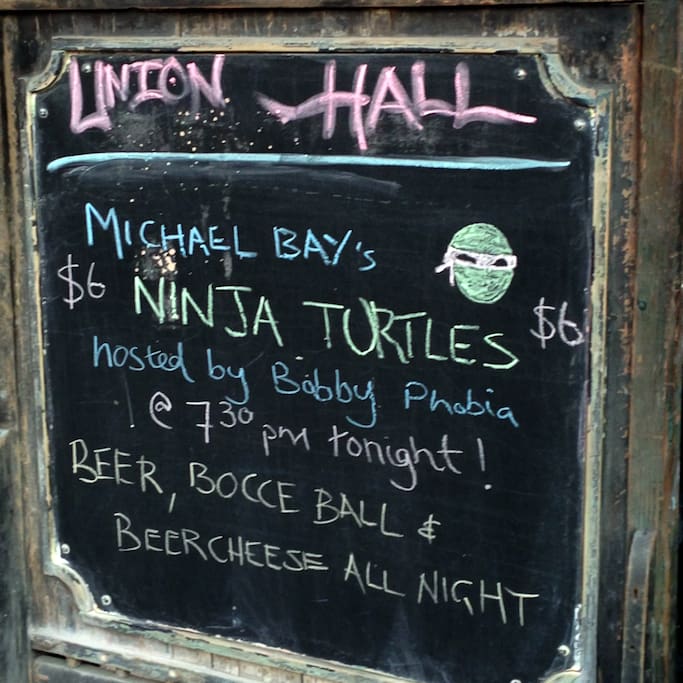 UNION HALL
MICHAEL BAY's
$6 NINJA TURTLES $6
hosted by Bobby Phobia
@ 730 pm tonight!
BEER, BOCCE BALL &
BEERCHEESE ALL NIGHT